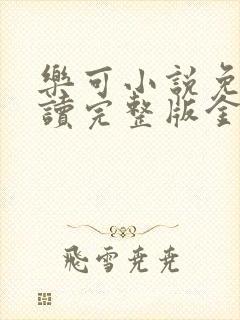 樂可小說免
讀完整版全
飛雪堯堯